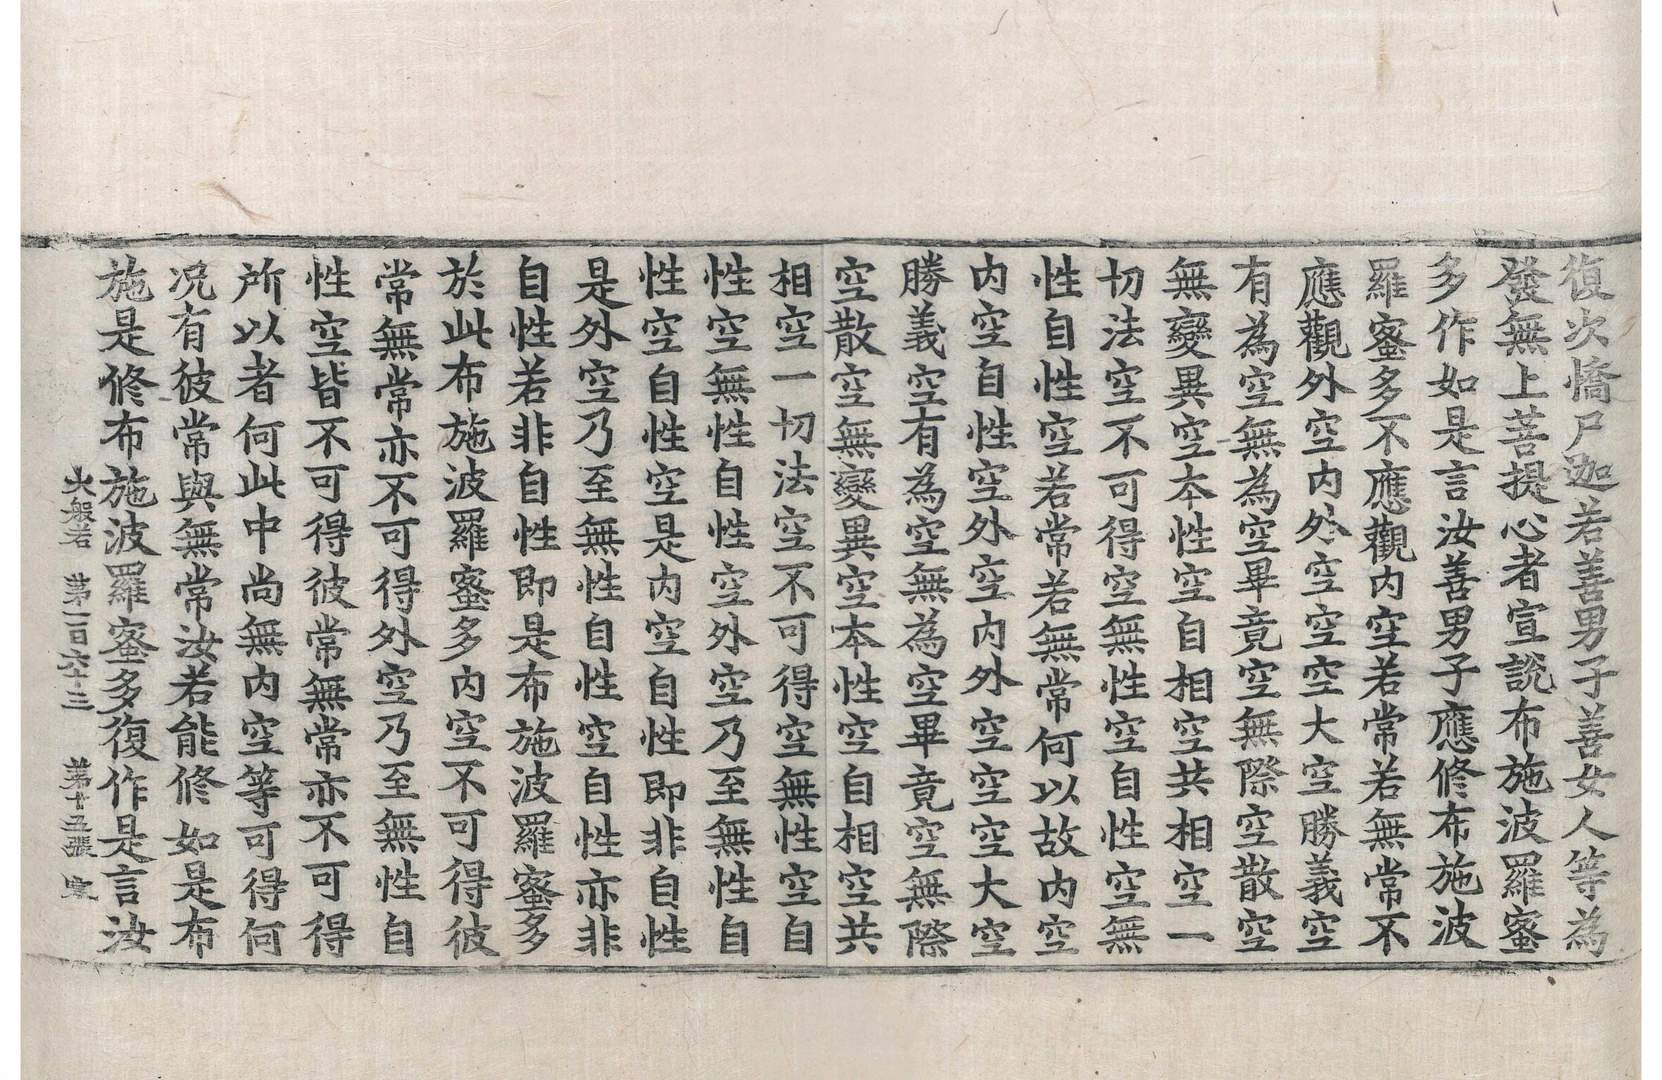 復次憍尸迦若善男子善女人等為
發無上菩提心者宣說布施波羅蜜
多作如是言汝善男子應修布施波
羅蜜多不應觀內空若常若無常不
應觀外空內外空空空大空勝義空
有為空無為空畢竟空無際空散空
無變異空本性空自相空共相空一
切法空不可得空無性空自性空無
性自性空若常若無常何以故內空
內空自性空外空內外空空空大空
勝義空有為空無為空畢竟空無際
空散空無變異空本性空自相空共
相空一切法空不可得空無性空自
性空無性自性空外空乃至無性自
性空自性空是內空自性即非自性
是外空乃至無性自性空自性亦非
自性若非自性即是布施波羅蜜多
於此布施波羅蜜多內空不可得彼
常無常亦不可得外空乃至無性自
性空皆不可得彼常無常亦不可得
所以者何此中尚無內空等可得何
況有彼常與無常汝若能修如是布
施是修布施波羅蜜多復作是言汝
大般若 第一百六十三 第十五張